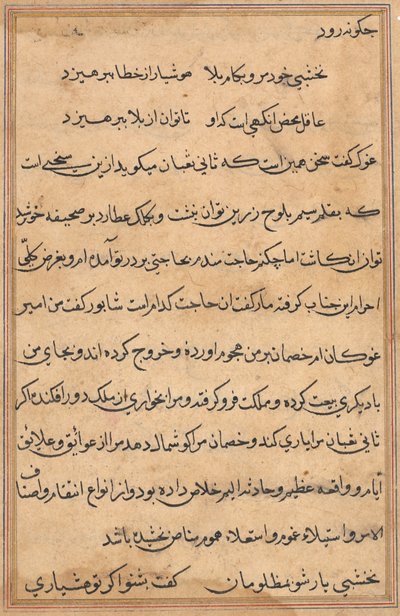 چکونه رود
نخشبی خود مرو بکام بلا هوشیار از خطا بپرهیزد
عاقل محض انکهی است که او تا توان از بلا بپرهیزد
غوک کفت سخن همین است که ثانی ثعبان میکوید از ین سخنی است
که بقلم سیم بلوح زرین توان نبشت و بکلک عطارد بر صحیفه خورشید
توان نکاشت اما چکنم حاجت مندم بحاجتی بر در تو آمده ام و بغرض کلی
احرام این جناب کرفته مار کفت ان حاجت کدام است شابور کفت من امیر
غوکان ام خصمان بر من هجوم اورده و خروج کرده اند و بجای من
با دیکری بیعت کرده و مملکت فرو کرفته و مرا بخواری از ملک دور افکنده اکر
ثانی ثعبان مرا یاری کند و خصمان مرا کوشمال دهد مرا از عوائق و علائق
ایام و واقعه عظیم و حادثه الیم خلاص داده بود و از انواع انتقام و اصناف
الام و استیلاء غموم و استعلاء هموم مناص بخشیده باشد
نخشبی یار شو بمظلومان کفت بشنو اکر تو هشیاری